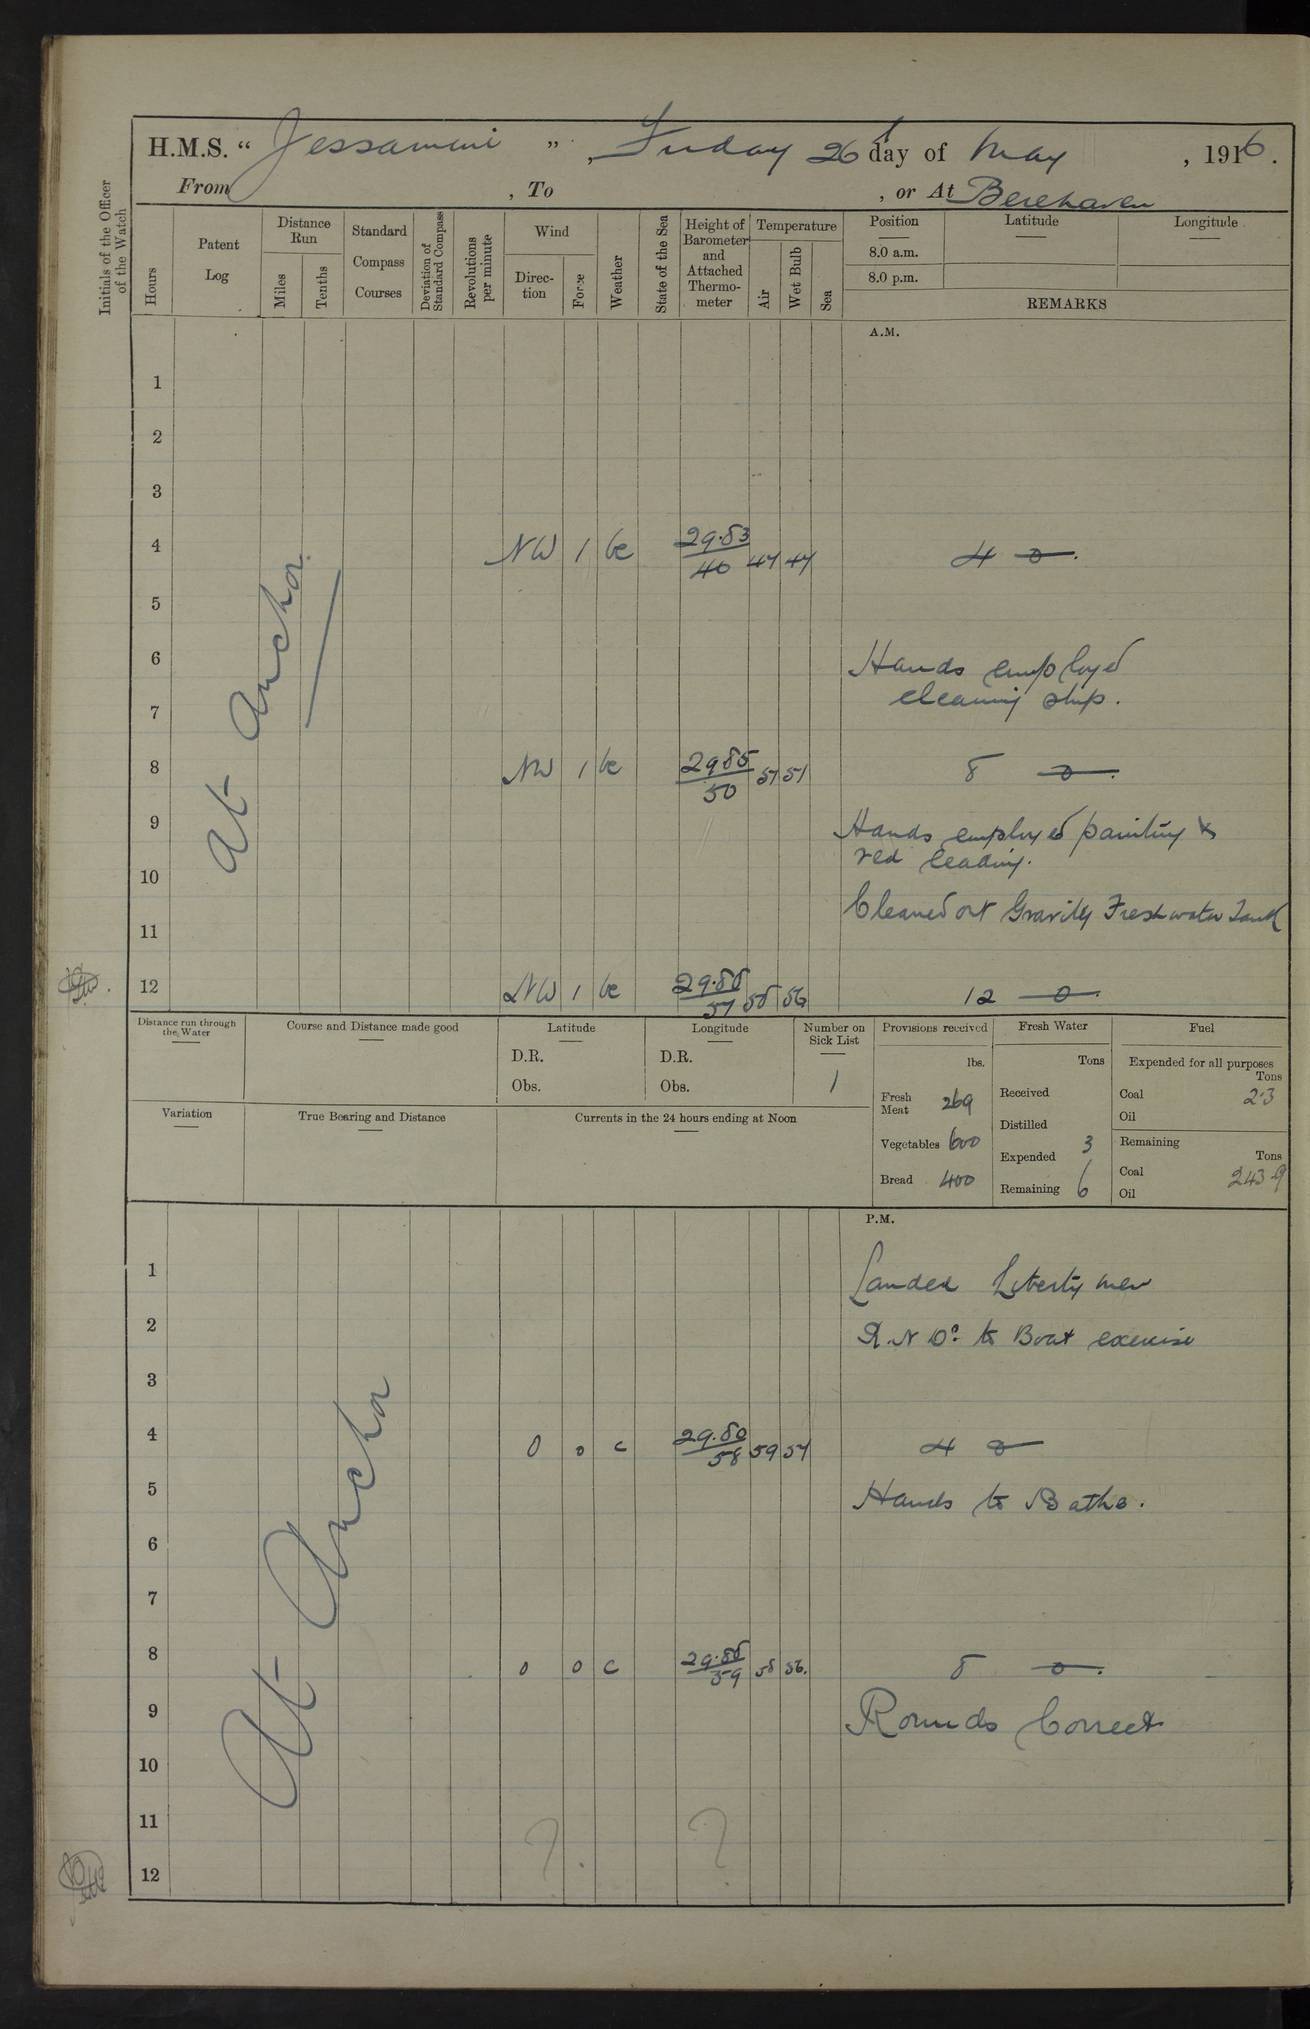 H.M.S. “ Jessamine ” , Friday 26 day of May , 1916.
From , To , or At Berehaven
Initials of the Officer of the Watch
Hours
Patent Log
Distance Run
Miles
Tenths
Standard Compass Courses
Deviation of Standard Compass
Revolutions per minute
Wind
Direc-tion
Force
Weather
State of the Sea
Height of Barometer and Attached Thermo-meter
Temperature
Air
Wet Bulb
Sea
Position
Latitude
Longitude
8.0 a.m.
8.0 p.m.
REMARKS
A.M.
At Anchor
1
2
3
4 NW 1 bc 29.83 / 40 47 47 4 o
5
6 Hands employed
7 cleaning ship.
8 NW 1 bc 2985 / 50 51 51 8 o
9 Hands employed painting &
red leading.
10
Cleaned out Gravity Freshwater Tank
11
12 NW 1 bc 29.88 / 57 58 56 12 o
Distance run through the Water
Course and Distance made good
Latitude
D.R.
Obs.
Longitude
D.R.
Obs.
Number on Sick List
1
Variation
True Bearing and Distance
Currents in the 24 hours ending at Noon
Provisions received
lbs.
Fresh Meat 269
Vegetables 600
Bread 400
Fresh Water
Tons
Received
Distilled
Expended 3
Remaining 6
Fuel
Expended for all purposes
Tons
Coal 2.3
Oil
Remaining
Tons
Coal 243.9
Oil
P.M.
At Anchor
1 Landed Liberty men
2 R.N Do. to Boat exercise
3
4 0 0 c 29.80 / 58 59 57 4 o
5 Hands to Bathe.
6
7
8 0 0 c 29.88 / 59 58 56. 8 o
9 Rounds Correct
10
11 ? ?
12